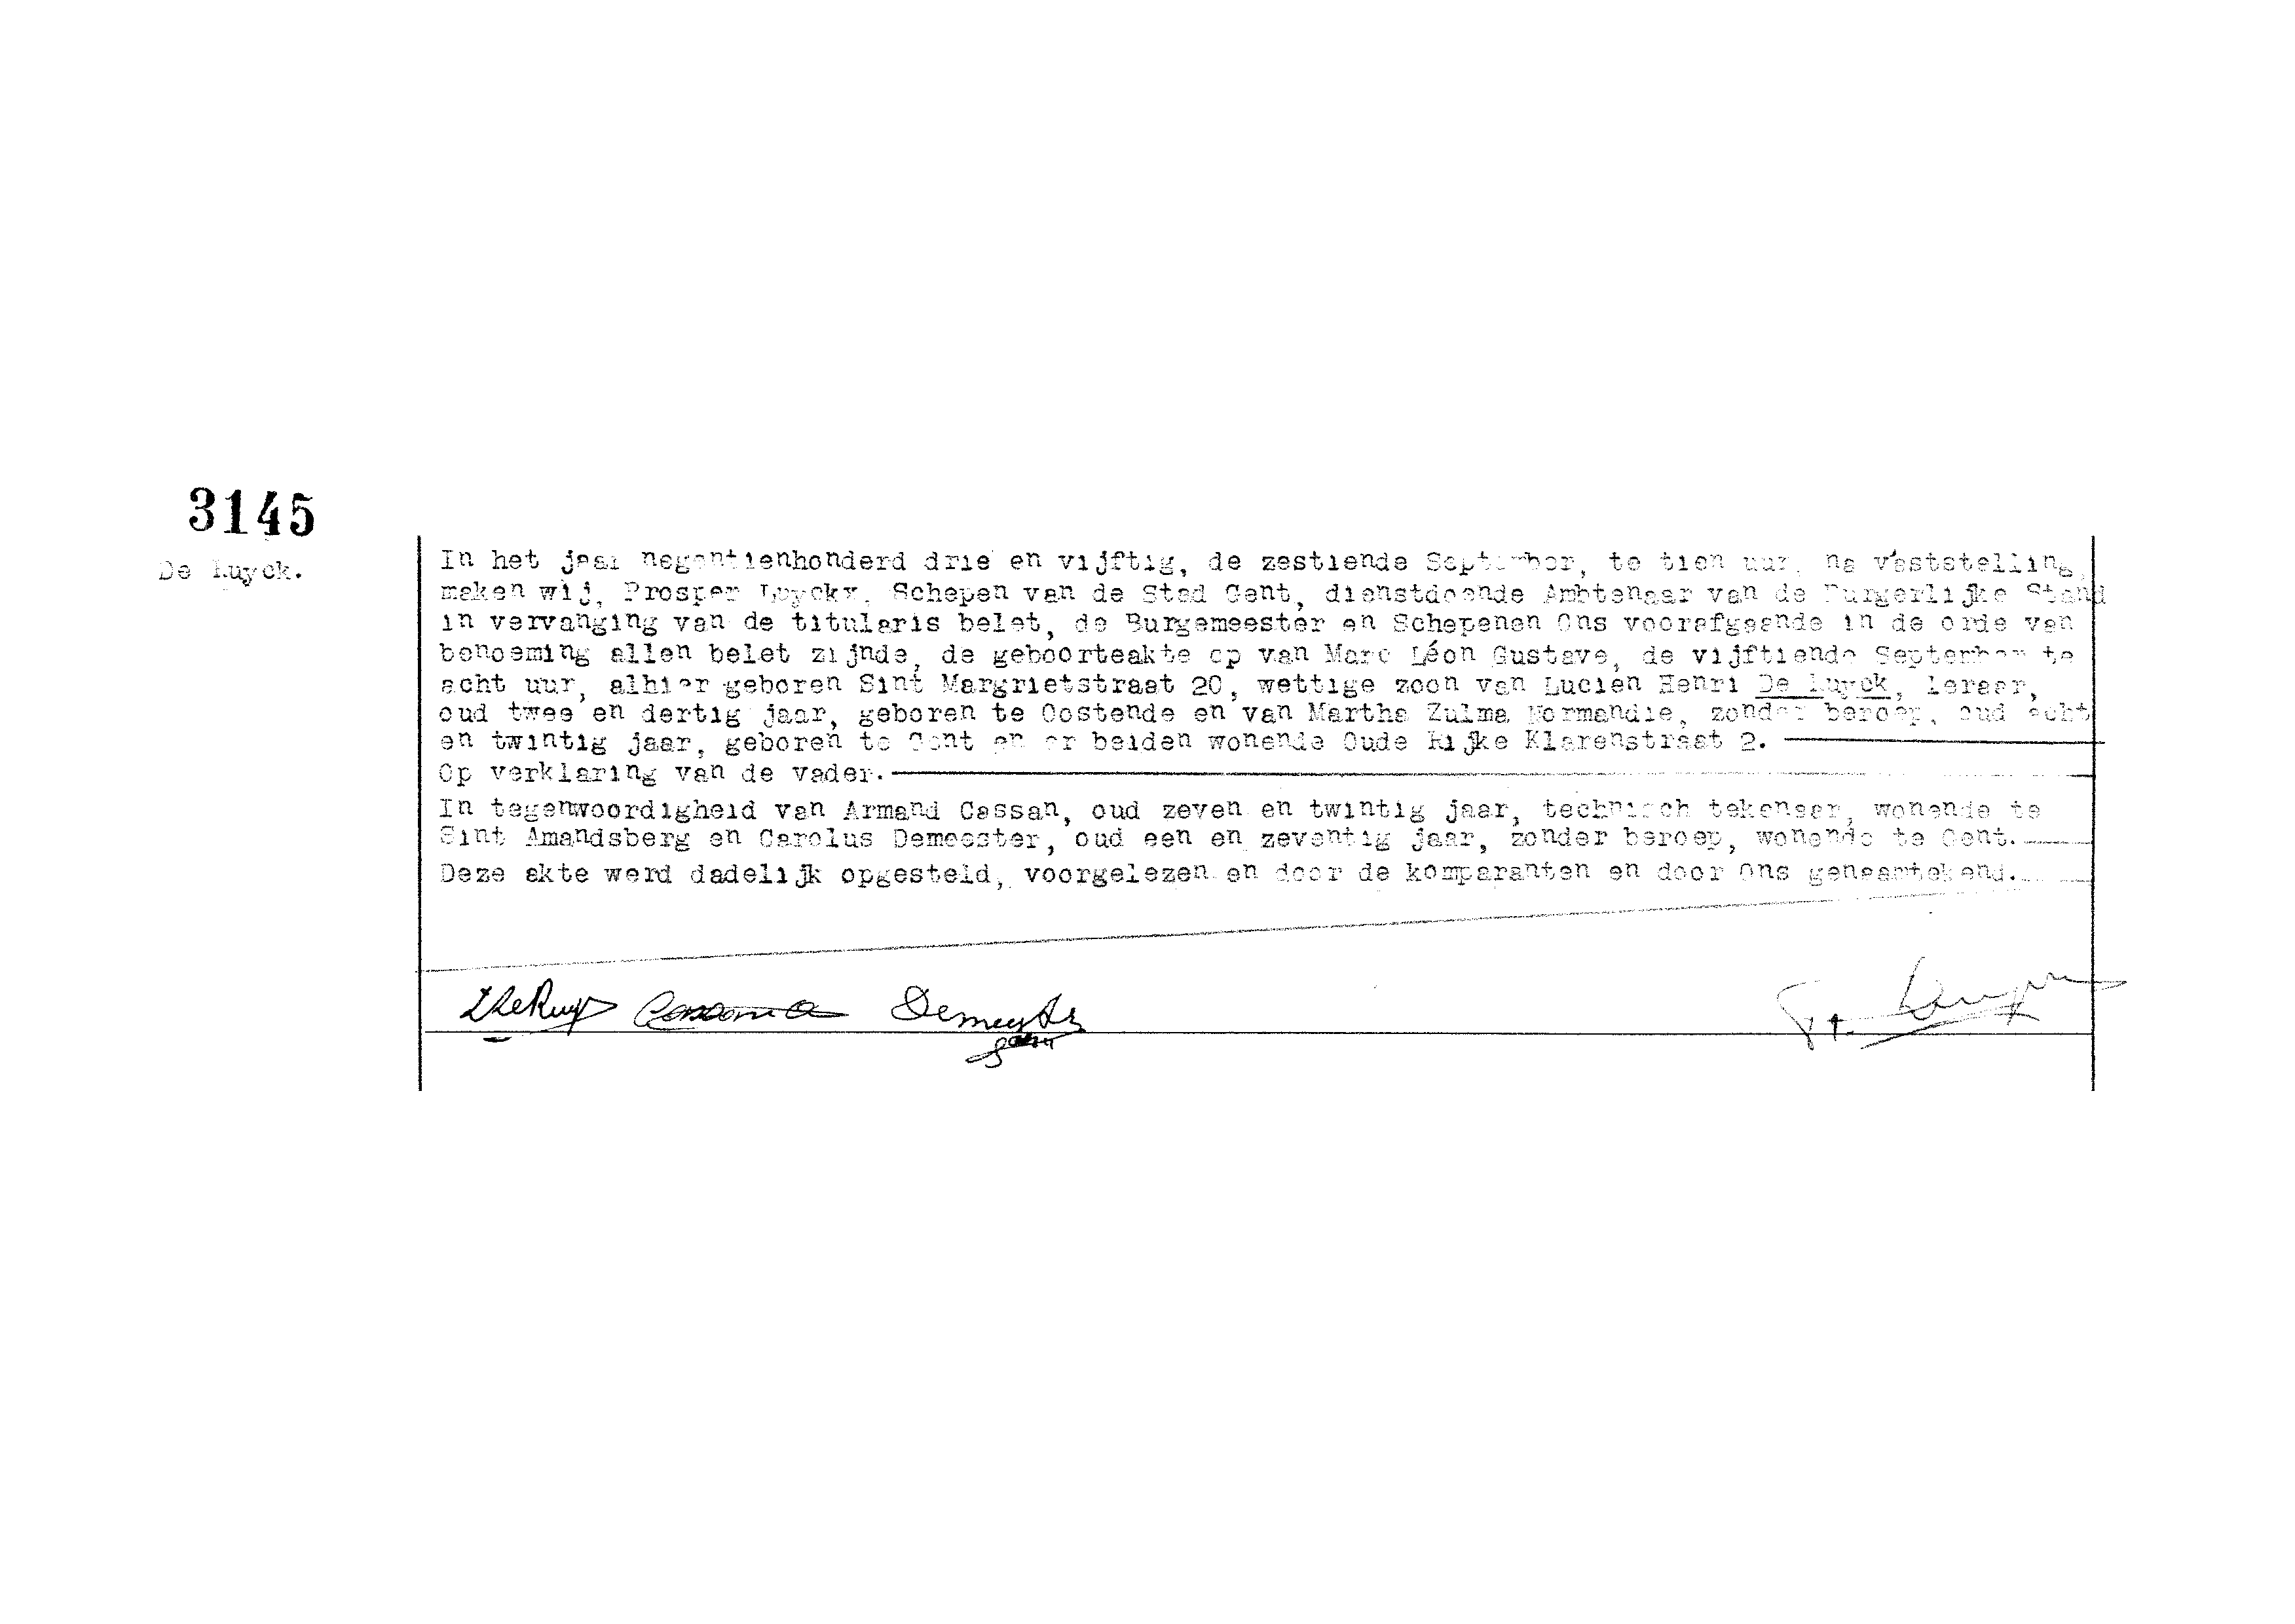 3145
De Ruyck.
In het jaar negentienhonderd drie en vijftig, de zestiende September, te tien uur, na vaststelling,
maken wij, Prosper Luyckx, Schepen van de Stad Gent, dienstdoende Ambtenaar van de Burgerlijke Stand
in vervanging van de titularis belet, de Burgemeester en Schepenen Ons voorafgaande in de orde van
benoeming allen belet zijnde, de geboorteakte op van Marc Léon Gustave, de vijftiende September te
acht uur, alhier geboren Sint Margrietstraat 20, wettige zoon van Lucien Henri De Ruyck, leraar,
oud twee en dertig jaar, geboren te Oostende en van Martha Zulma Normandie, zonder beroep, oud acht
en twintig jaar, geboren te Gent en er beiden wonende Oude Rijke Klarenstraat 2.
Op verklaring van de vader.
In tegenwoordigheid van Armand Cassan, oud zeven en twintig jaar, technisch tekenaar, wonende te
Sint Amandsberg en Carolus Demeester, oud een en zeventig jaar, zonder beroep, wonende te Gent.
Deze akte werd dadelijk opgesteld, voorgelezen en door de komparanten en door Ons genaamtekend.
Demeester